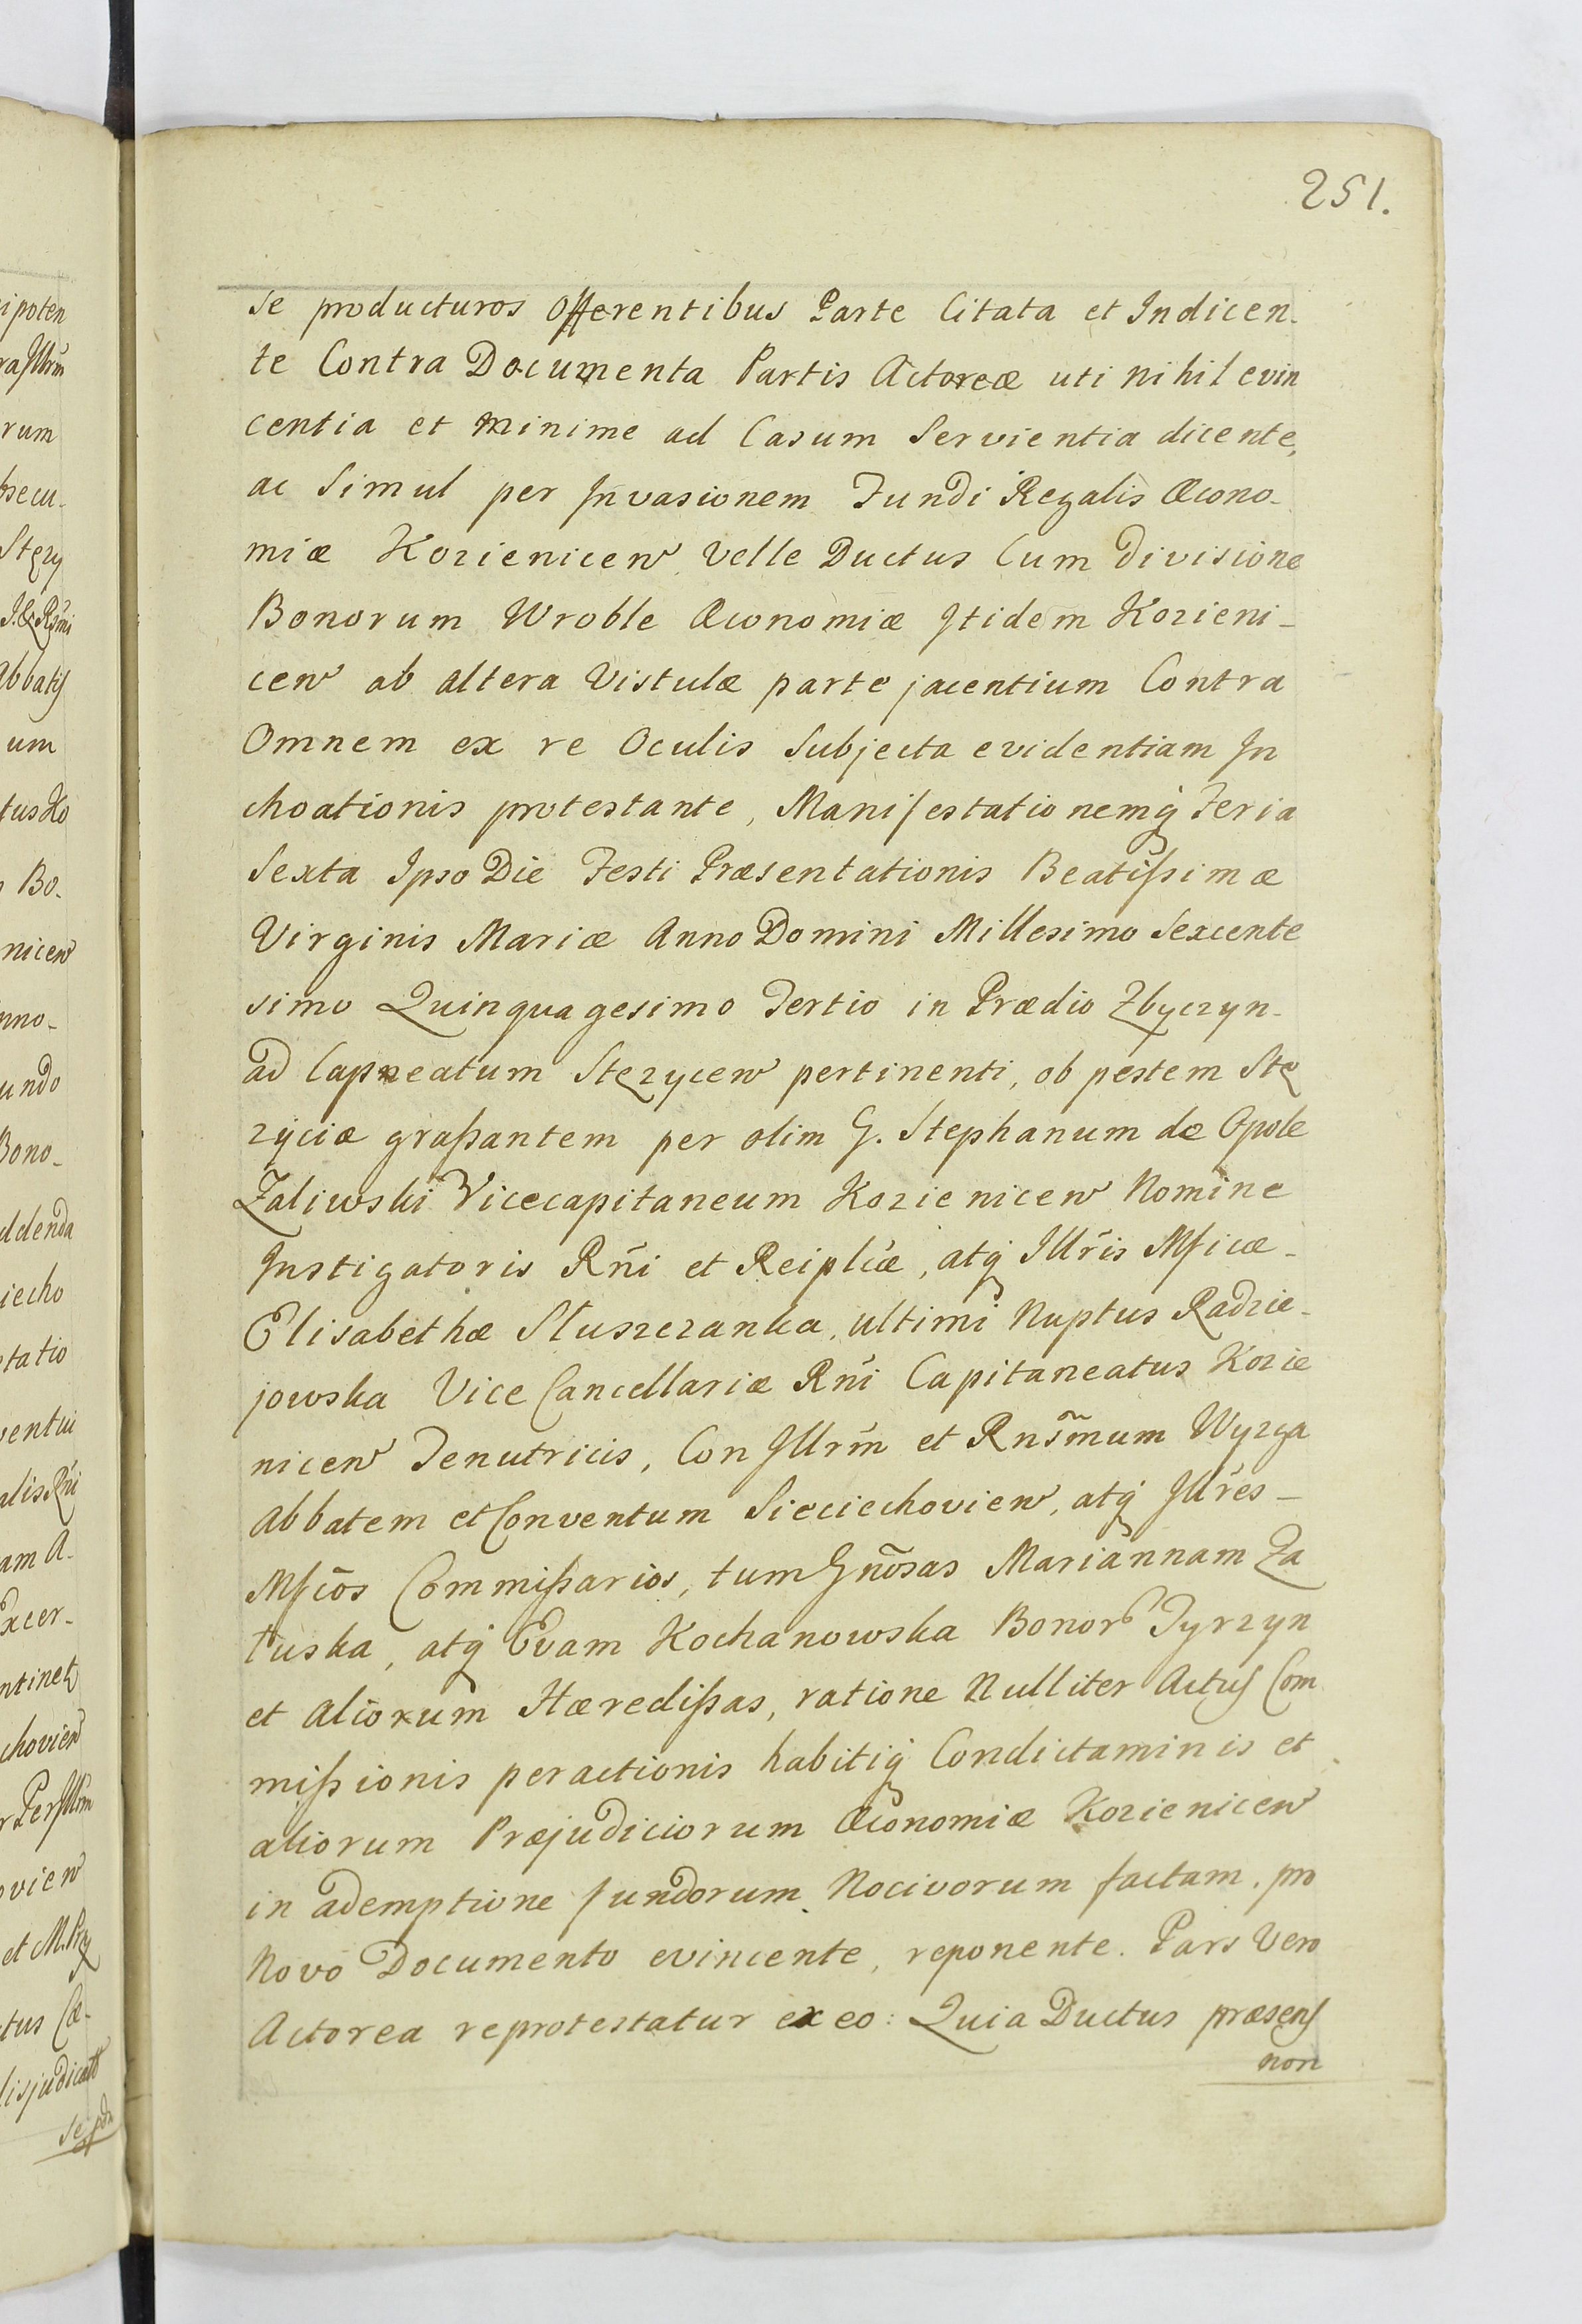 251.
se producturos Offerentibus Parte Citata et Indicen-
te Contra Documenta Partis Actoreæ uti nihil evin
centia et minime ad Casum Servientia dicente,
ac Simul per Invasionem Fundi Regalis Œcono-
miæ Kozienicen Velle Ductus Cum divisione
Bonorum Wroble Œconomiæ Itidem Kozieni-
cen ab altera Vistulæ parte jacentium Contra
Omnem ex re Oculis Subjecta evidentiam In
choationis protestante, Manifestationemq Feria
Sexta Ipso Die Festi Præsentationis Beatissimæ
Virginis Mariæ Anno Domini Millesimo Sexcente
simo Quinquagesimo Tertio in Prædio Zbyczyn-
ad Capneatum Stęzycen pertinenti, ob pestem Stę
zyciæ grassantem per olim G. Stephanum de Opole
Zaliwski Vicecapitaneum Kozienicen Nomine
Instigatoris Rñi et Reiplicæ, atq Illris Mficæ-
Elisabethæ Słuszczanka, ultimi Nuptus Radzie-
jowska Vice Cancellariæ Rñi Capitaneatus Kozie
nicen Tenutricis, Con Illrm et Rnsm̃um Wyzga
Abbatem et Conventum Sieciechovien, atq Illres-
Mficos Commissarios, tum Gnosas Mariannam Za
łuska, atq Evam Kochanowska Bonor Tyrzyn
et aliorum Hæredissas, ratione Nulliter Actus Com
missionis peractionis habitiq Condictaminis et
aliorum Præjudiciorum Œconomiæ Kozienicen
in ademptione fundorum Nocivorum factam, pro
Novo Documento evincente, reponente. Pars Vero
Actorea reprotestatur ex eo: Quia Ductus præsens
non